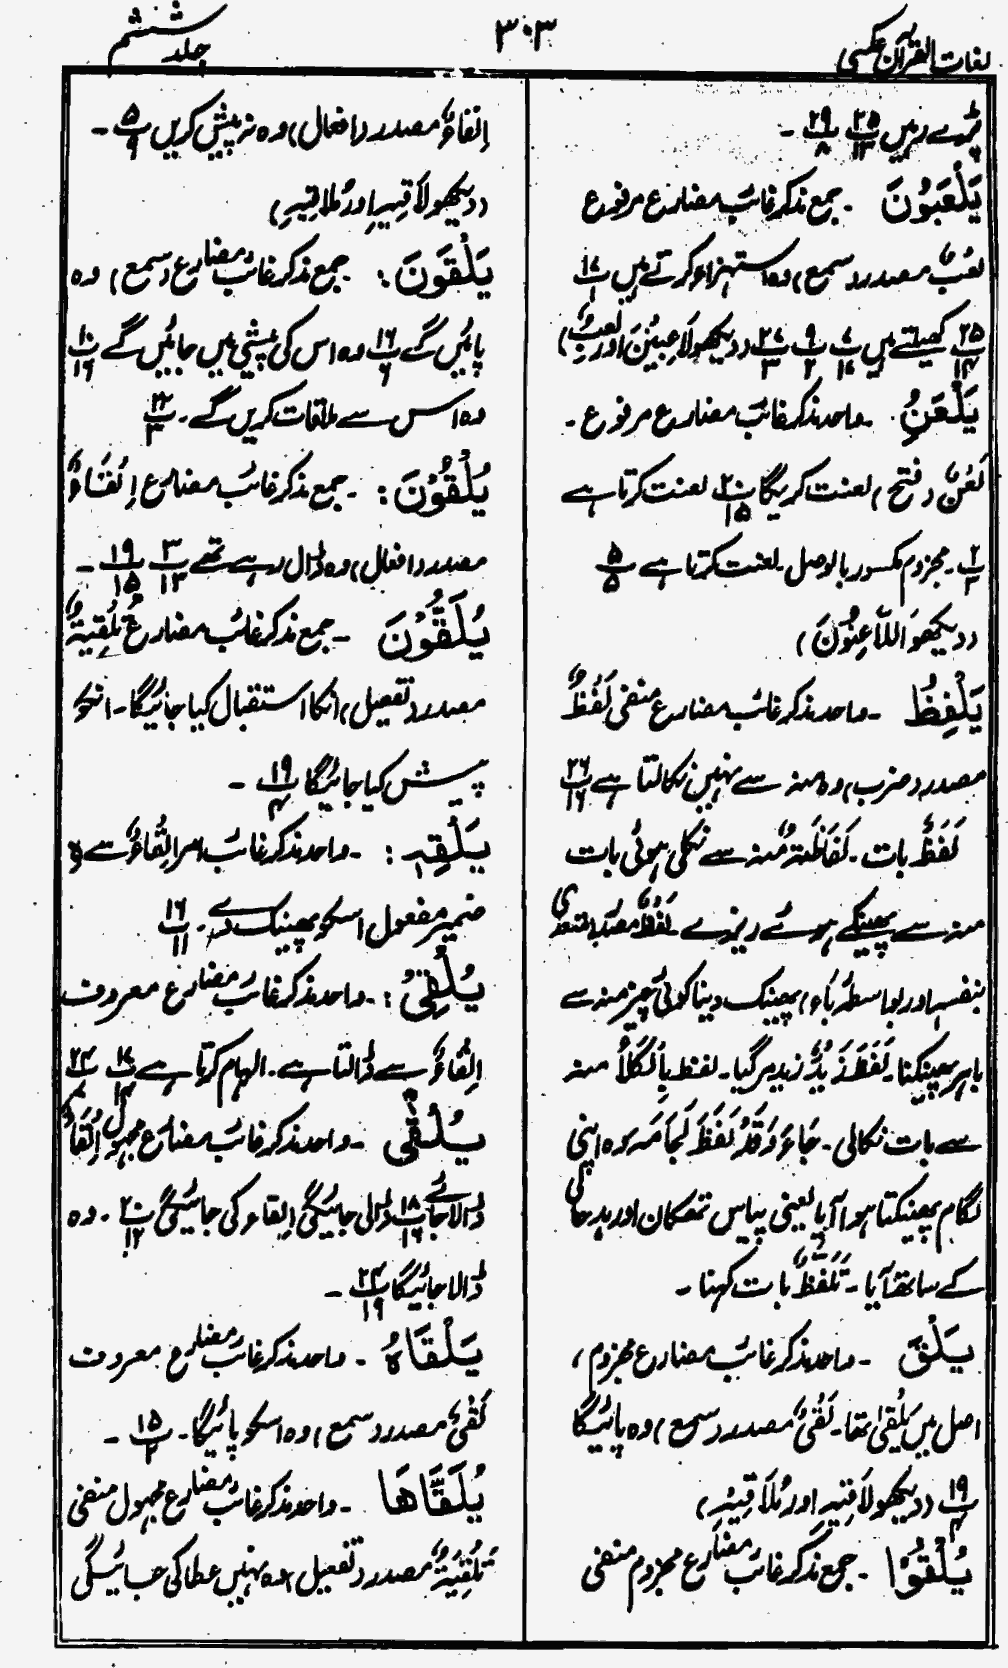 لغات القرآن عکسی
۳۰۳
جلد ششم
پڑے رہیں ۲۵/۱۳ ۲۹/۸ -
یَلْعَبُوْنَ - جمع مذکر غائب مضارع مرفوع
لَعْبٌ مصدر (سمع) وہ استہزاء کرتے ہیں
۲۵/۱۴ کھیلتے ہیں ۷/۱۷ ۹/۲ ۲۷/۳ (دیکھو لَاعِبِیْنَ اور لَعِبٌ)
یَلْعَنُ - واحد مذکر غائب مضارع مرفوع -
لَعْنٌ (فتح) لعنت کریگا ۲۰/۱۵ لعنت کرتا ہے
۲/۳ - مجزوم مکسور بالوصل - لعنت کرتا ہے ۵/۵
(دیکھو اللَّاعِنُوْنَ)
یَلْفِظُ - واحد مذکر غائب مضارع منفی لَفْظٌ
مصدر (ضرب) وہ منہ سے نہیں نکالتا ہے ۲۶/۱۶
لَفْظٌ بات - لُفَاظَةٌ منہ سے نکلی ہوئی بات
منہ سے پھینکے ہوئے ریزے - لَفْظٌ مصدر (متعدی
بنفسہ اور بواسطہ بَاء) پھینک دینا کوئی چیز منہ سے
باہر پھینکنا - لَفَظَ زَیْدٌ زید مر گیا - لفظ بِالْکَلَامِ منہ
سے بات نکالی - جَاءَ وَقَدْ لَفَظَ لِجَامَہٗ وہ اپنی
لگام پھینکتا ہوا آیا یعنی پیاس تھکان اور بدحالی
کے ساتھ آیا - تَلَفُّظٌ بات کہنا -
یَلْقَ - واحد مذکر غائب مضارع مجزوم،
اصل میں یَلْقٰی تھا - لَقْیٌ مصدر (سمع) وہ پائیگا
۱۹/۴ (دیکھو لَاقِیْہِ اور مُلَاقِیْہِ)
یُلْقُوْا - جمع مذکر غائب مضارع مجزوم منفی
اِلْقَاءٌ مصدر (افعال) وہ نہ پیش کریں ۵/۹ -
(دیکھو لَاقِیْہِ اور مُلَاقِیْہِ)
یَلْقَوْنَ: - جمع مذکر غائب مضارع (سمع) وہ
پائیں گے ۱۶/۶ وہ اس کی پیشی میں جائیں گے ۱۰/۱۶
وہ اس سے ملاقات کریں گے - ۲۲/۳
یُلْقُوْنَ: - جمع مذکر غائب مضارع اِلْقَاءٌ
مصدر (افعال) وہ ڈال رہے تھے ۳/۱۳ ۱۹/۱۵ -
یُلَقَّوْنَ - جمع مذکر غائب مضارع تَلْقِیَۃٌ
مصدر (تفعیل) انکا استقبال کیا جائیگا - انکو
پیش کیا جائیگا ۱۹/۴ -
یُلْقِہٖ: - واحد مذکر غائب امر اِلْقَاءٌ سے ہ
ضمیر مفعول اسکو پھینک دے - ۱۶/۱۱
یُلْقِیْ: - واحد مذکر غائب مضارع معروف
اِلْقَاءٌ سے ڈالتا ہے - الہام کرتا ہے ۱۷/۱۴ ۲۴/۷
یُلْقٰی - واحد مذکر غائب مضارع مجہول اِلْقَاءٌ
ڈالا جائے ۱۸/۱۶ ڈالی جائیگی اِلقاء کی جائیگی ۲۰/۱۲ - وہ
ڈالا جائیگا ۲۴/۱۹ -
یَلْقَاہُ - واحد مذکر غائب مضارع معروف
لَقْیٌ مصدر (سمع) وہ اسکو پائیگا - ۱۵/۲ -
یُلَقَّاھَا - واحد مذکر غائب مضارع مجہول منفی
تَلْقِیَۃٌ مصدر (تفعیل) وہ نہیں عطا کی جائیگی